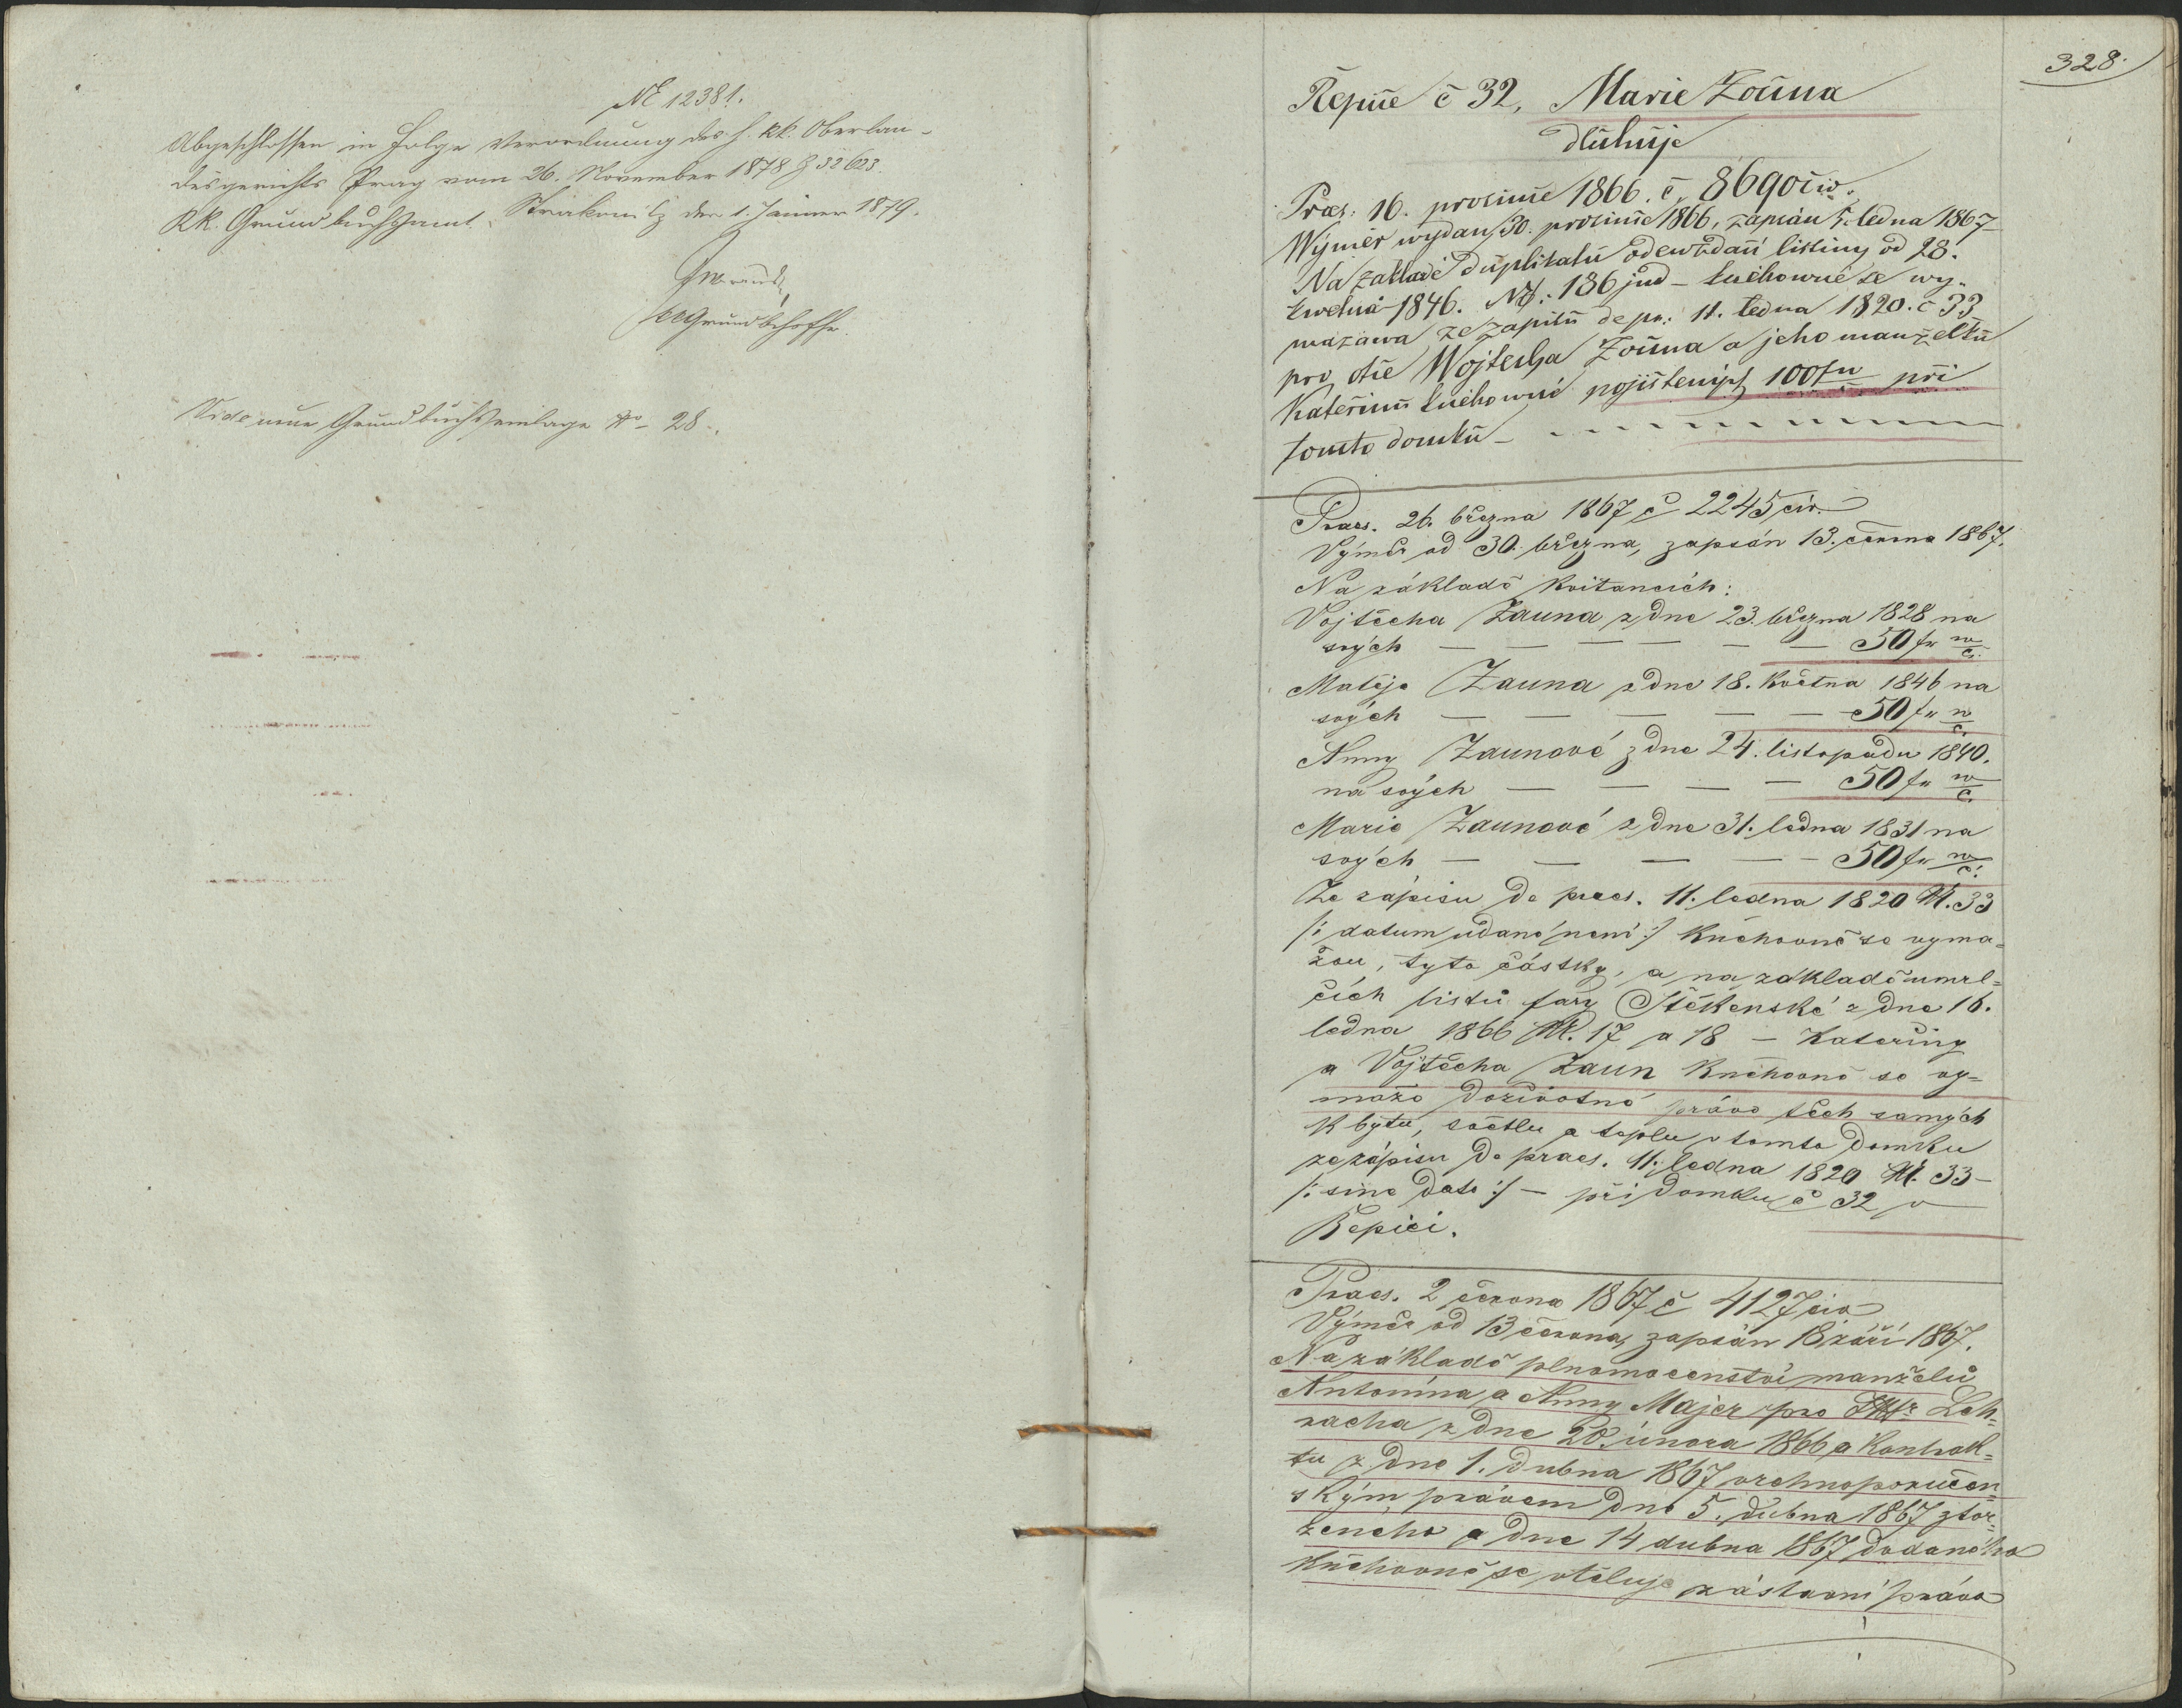 NE 12381.
Abgeschlossen in Folge Verordnung des h. kk. Oberlan-
desgerichts Prag vom 26. November 1878 Z 32623.
KK. Grundbuchsamt Strakonitz den 1. Jänner 1879.
Vide neue Grundbuchseinlage No 28.
328.
Řepice č 32, Marie Zouna
dluhuje
Præs: 16. prosince 1866. č. 8690 civ.
Wýměr wydan 30. prosince 1866, zapsán 5. ledna 1867
Na zakladě duplikatu odewzdací listiny od 28.
kwetna 1846. No: 136 jud – knihowně se wy-
mazawa ze zapisu de pr: 11. ledna 1820. č 33
pro otce Wojtecha Zouna a jeho manželku
Kateřinu knihowně pojištených 100 fn při
tomto domku –
Praes. 26. března 1867 č 2245 civ.
Výměr od 30. března, zapsán 13. června 1867.
Na základě kvitancích:
Vojtěcha Zauna z dne 23. března 1828 na
svých — — — — — 50 fn w
č.
Matěje Zauna z dne 18. května 1846 na
svých — — — — — 50 fn w
č.
Anny Zaunové z dne 24. listopadu 1840.
na svých — — — — 50 fn w
č.
Marie Zaunové z dne 31. ledna 1831 na
svých — — — — — 50 fn w
č.
Ze zápisu de praes. 11. ledna 1820 N. 33
/: datum udané není :/ knihovně se vyma=
žou, tyto částky, a na základě umrl=
čích listů fary Štěkenské z dne 16.
ledna 1866 N. 17 a 18 – Kateřiny
a Vojtěcha Zaun knihovně se vy=
maže doživotné právo těch samých
k bytu, světlu a teplu v tomto domku
ze zápisu de praes. 11. ledna 1820 N. 33 –
/: sine dato :/ – při domku č 32 v
Řepici.
Praes. 2 června 1867 č 4127 civ
Výměr od 13 června, zapsán 18 září 1867.
Na základě plnomocenství manželů
Antonína a Anny Majer pro Leh-
racha z dne 20. února 1866 a kontrak=
tu z dne 1. dubna 1867 vrchnoporučen=
ským právem dne 5. dubna 1867 ztvr=
zeného a dne 14 dubna 1867 dodaného
knihovně se vtěluje zástavní právo